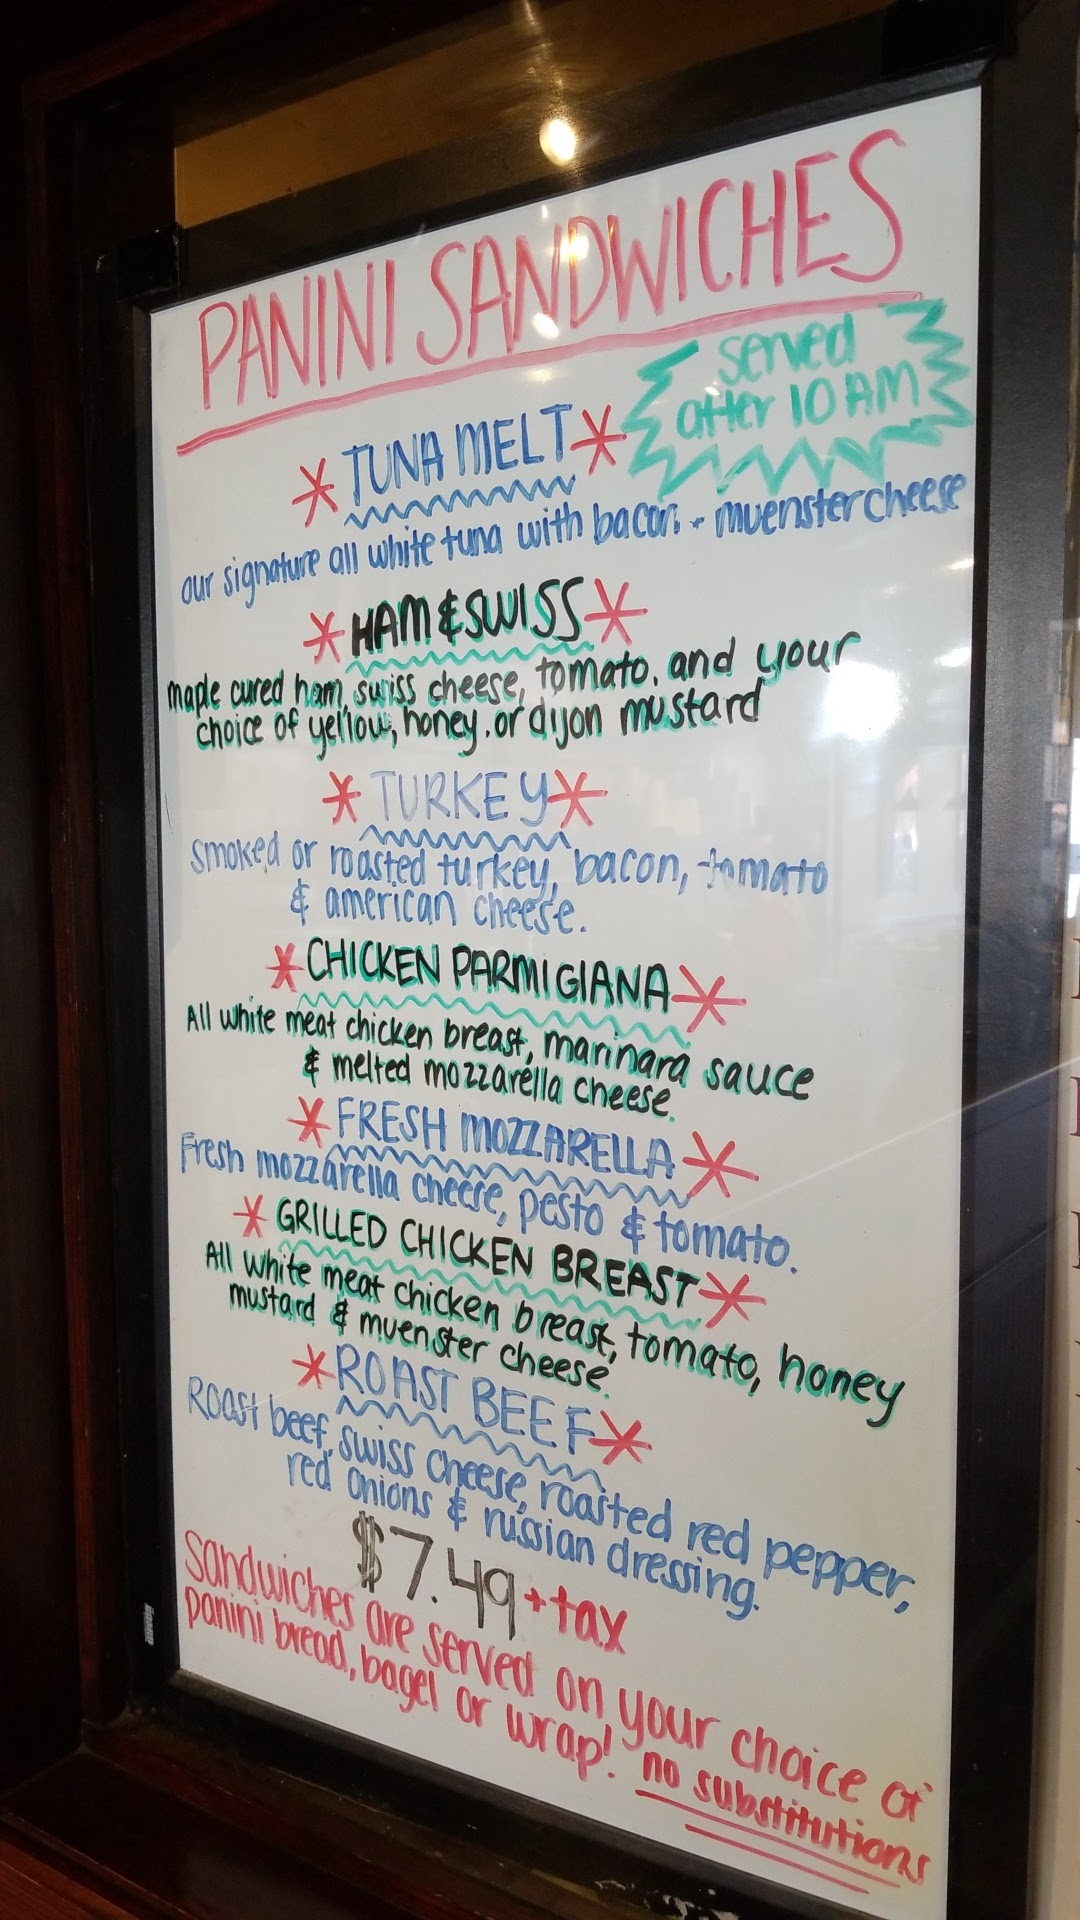 PANINI SANDWICHES
served
after 10 AM
TUNA MELT
our signature all white tuna with bacon + muenster cheese
HAM & SWISS
maple cured ham, swiss cheese, tomato, and your
choice of yellow, honey, or dijon mustard
TURKEY
Smoked or roasted turkey, bacon, tomato
& american cheese.
CHICKEN PARMIGIANA
All white meat chicken breast, marinara sauce
& melted mozzarella cheese.
FRESH MOZZARELLA
Fresh mozzarella cheese, pesto & tomato.
GRILLED CHICKEN BREAST
All white meat chicken breast, tomato, honey
mustard & muenster cheese.
ROAST BEEF
Roast beef, swiss cheese, roasted red pepper,
red onions & russian dressing.
$7.49 + tax
Sandwiches are served on your choice of
panini bread, bagel or wrap! no substitutions